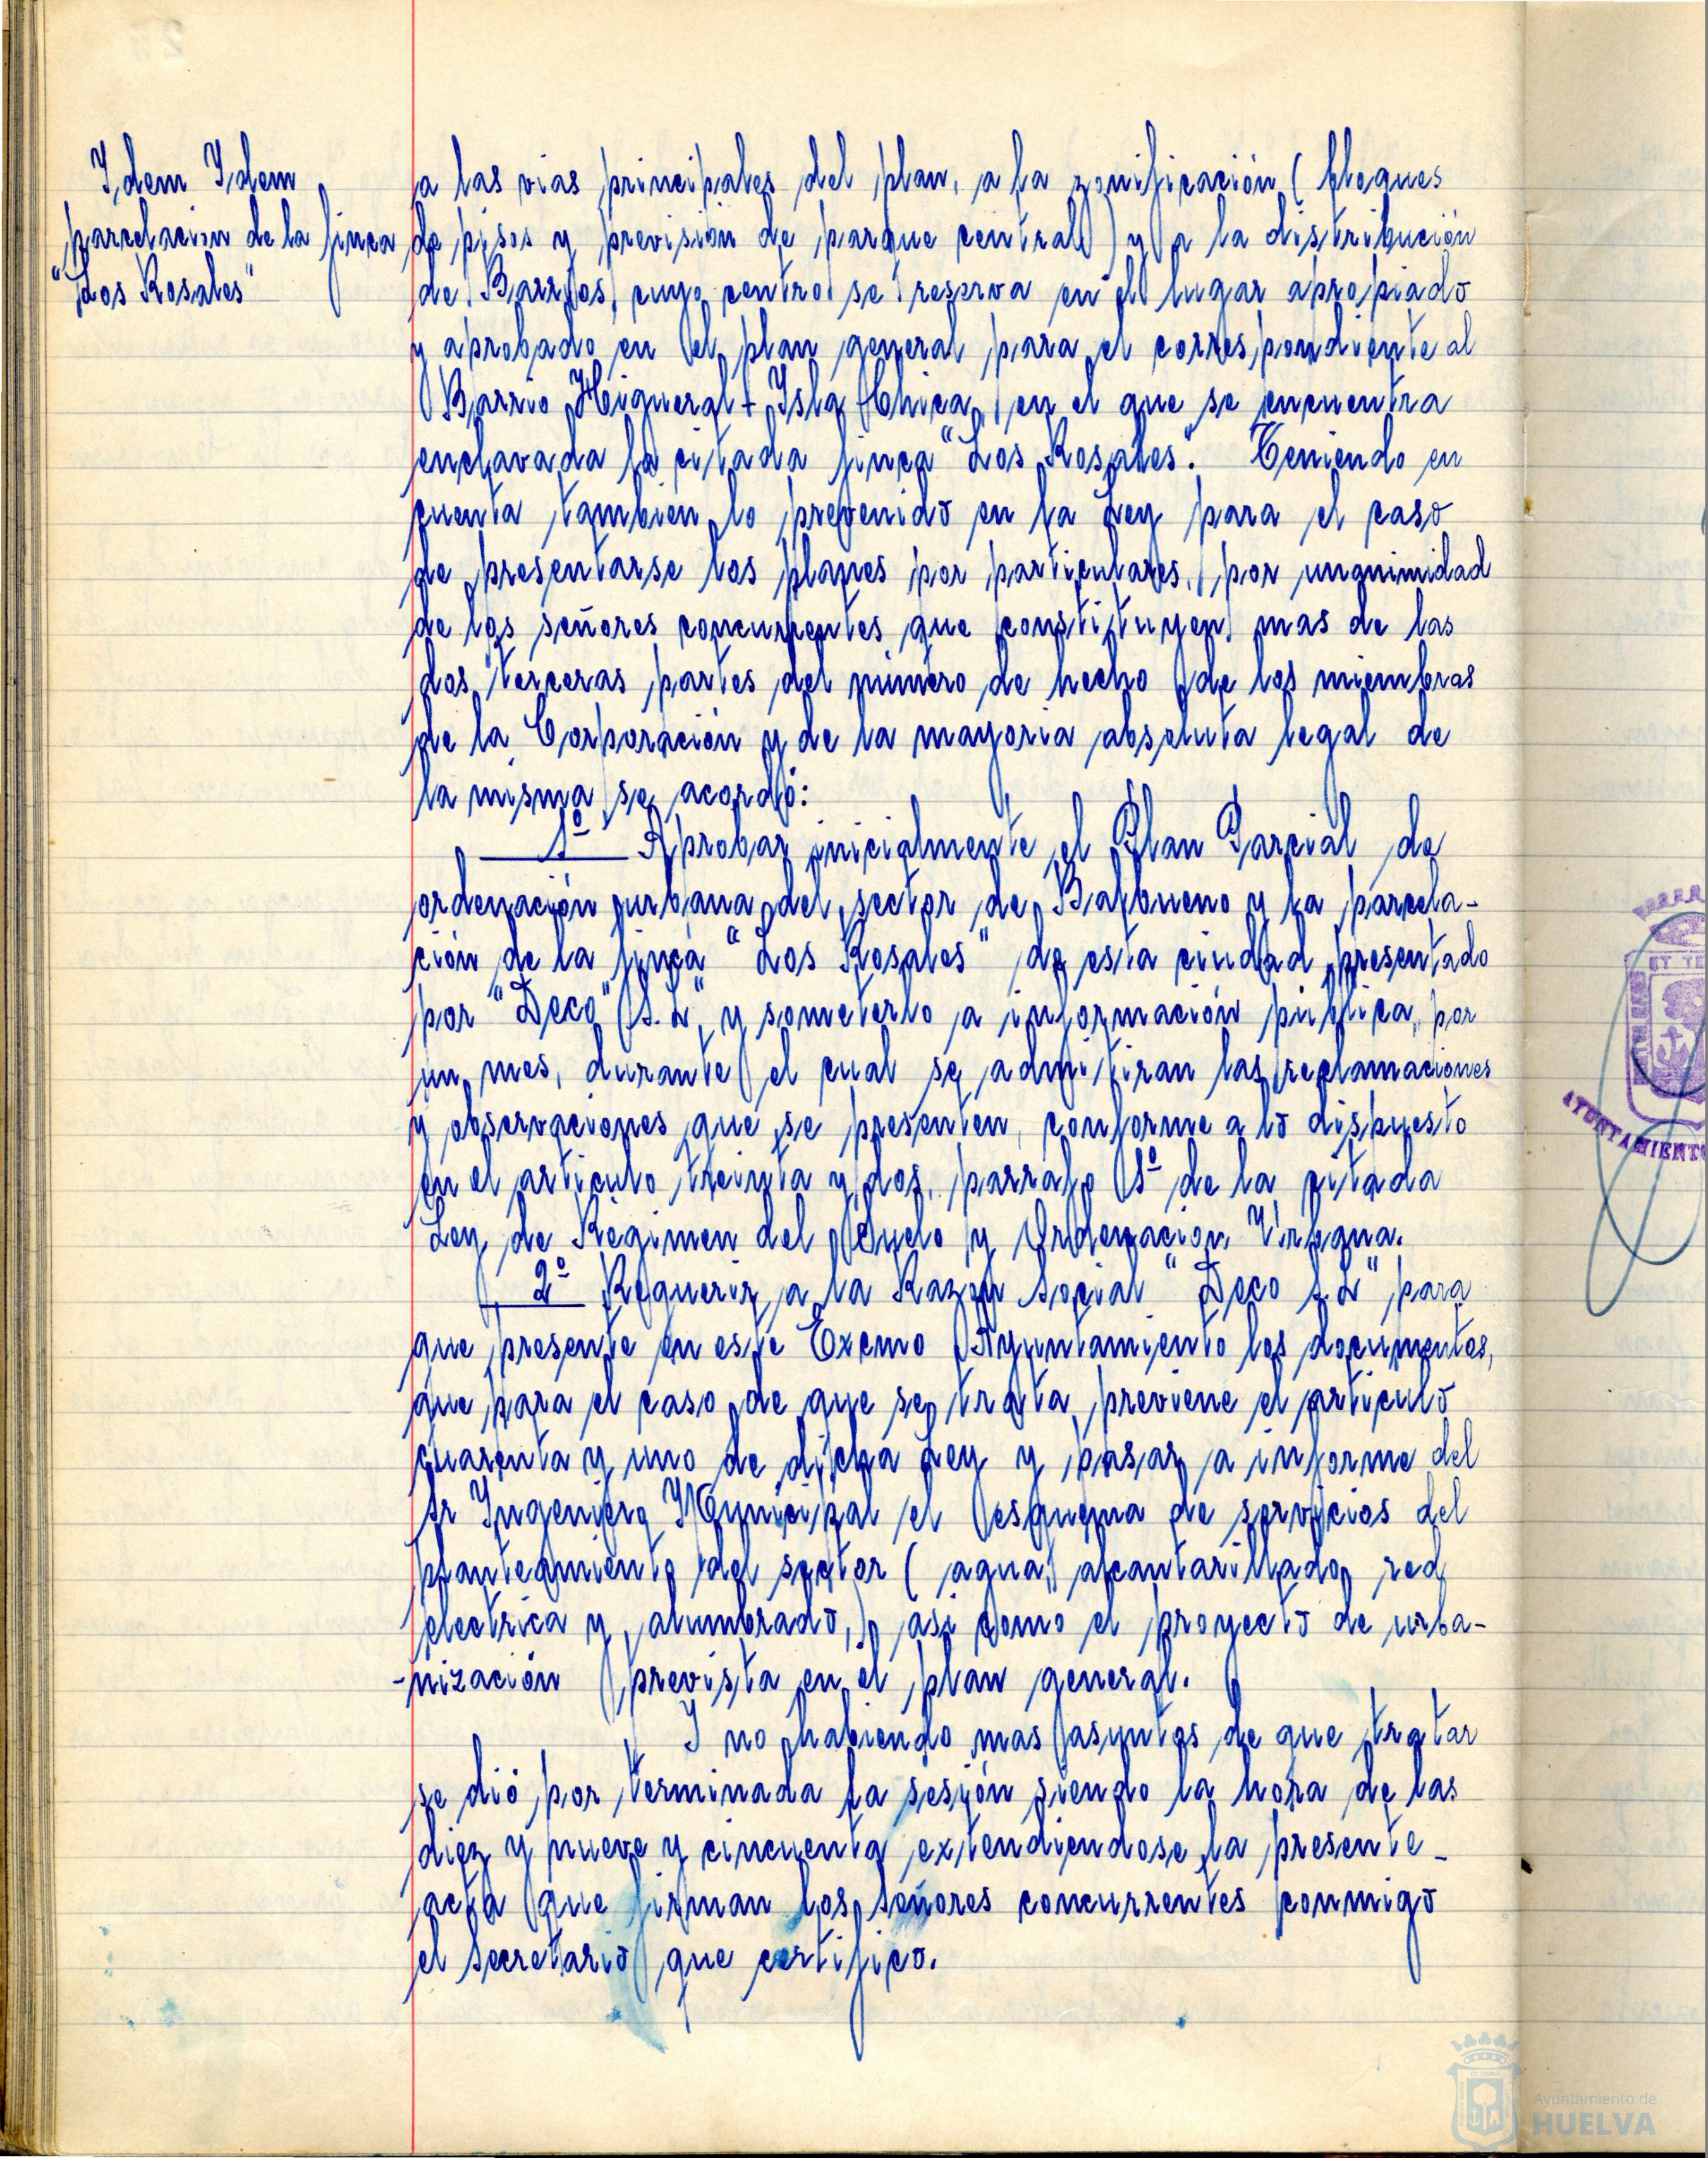 Idem Idem
parcelacion de la finca
"Los Rosales"
a las vias principales del plan, a la zonificación (bloques
de pisos y previsión de parque central) y a la distribución
de Barrios, cuyo centro se reserva en el lugar apropiado
y aprobado en el plan general para el correspondiente al
Barrio Higueral - Isla Chica, en el que se encuentra
enclavada la citada finca "Los Rosales". Teniendo en
cuenta tambien lo prevenido en la Ley para el caso
de presentarse los planes por particulares, por unanimidad
de los señores concurrentes que constituyen mas de las
dos terceras partes del número de hecho de los miembros
de la Corporación y de la mayoria absoluta legal de
la misma se acordó:
1º Aprobar inicialmente el Plan Parcial de
ordenación urbana del sector de Balbueno y la parcela-
ción de la finca "Los Rosales" de esta ciudad presentado
por "Deco" S.L" y someterlo a información pública, por
un mes, durante el cual se admitiran las reclamaciones
y observaciones que se presenten, conforme a lo dispuesto
en el articulo treinta y dos, parrafo 1º de la citada
Ley de Regimen del Suelo y Ordenación Urbana.
2º Requerir a la Razón Social "Deco S.L" para
que presente en este Excmo Ayuntamiento los documentos,
que para el caso de que se trata, previene el articulo
cuarenta y uno de dicha Ley y pasar a informe del
Sr Ingeniero Municipal el esquema de servicios del
planteamiento del sector (agua, alcantarillado, red
electrica y alumbrado,) asi como el proyecto de urba-
-nización prevista en el plan general.
Y no habiendo mas asuntos de que tratar
se dió por terminada la sesión siendo la hora de las
diez y nueve y cincuenta, extendiendose la presente
acta que firman los señores concurrentes conmigo
el Secretario que certifico.
ET TE
AYUNTAMIENTO
Ayuntamiento de
HUELVA